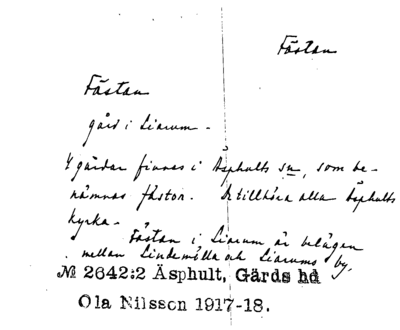 Fästan
Fästan
gård i Liarum -
4 gårdar finnas i Äsphults sn, som be-
nämnas fästor. De tillhöra alla Äsphults
kyrka -
Fästan i Liarum är belägen
mellan Lindemölla och Liarums by.
№ 2642:2 Äsphult, Gärds hd
Ola Nilsson 1917-18.